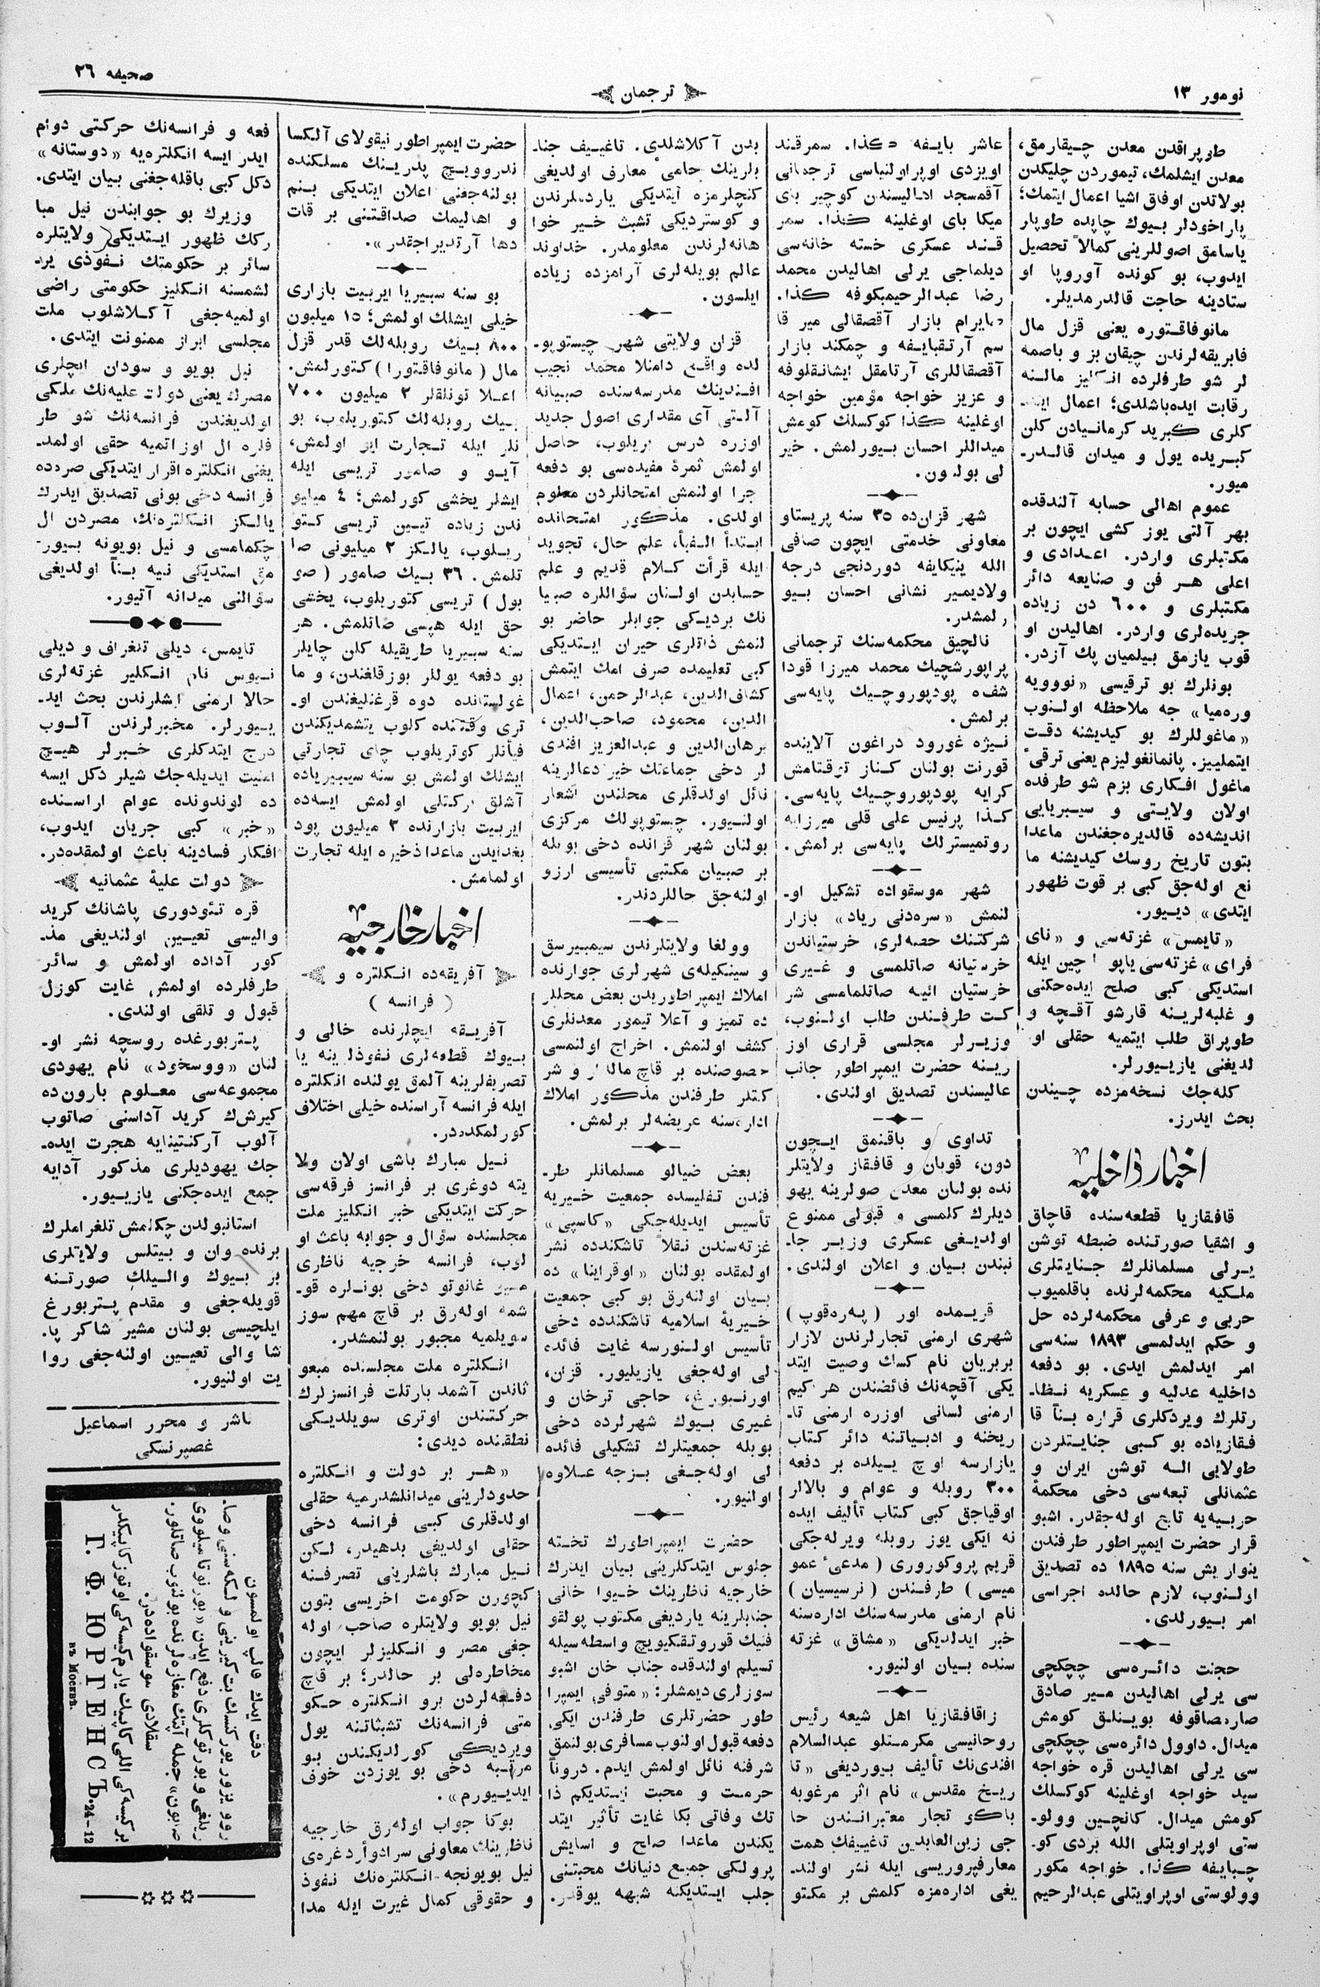 نومور ۱۳
ترجمان
صحیفه ۲۶
طوپراقدن معدن چیقارمق،
معدن ایشلمك، تیموردن چلیکدن
بولاتدن اوفاق اشیا اعمال ایتمك؛
پاراخودلر بیوك چایده طوپار
یاسامق اصوللرینی کمالاً تحصیل
ایدوب، بو کونده آوروپا او
ستادینه حاجت قالدرمدیلر.
مانوفاقتوره یعنی قزل مال
فابریقه‌لرندن چیقان بز و باصمه
لر شو طرفلرده انکلیز مالنه
رقابت ایده‌باشلدی؛ اعمال ایتد
کلری کبرید کرمانیادن کلن
کبریده یول و میدان قالدر-
میور.
عموم اهالی حسابه آلندقده
بهر آلتی یوز کشی ایچون بر
مکتبلری واردر. اعدادی و
اعلی هر فن و صنایعه دائر
مکتبلری و ٦٠٠ دن زیاده
جریده‌لری واردر. اهالیدن او
قوب یازمق بیلمیان پك آزدر.
بونلرك بو ترقیسی «نوویه
وره‌میا» جه ملاحظه اولنوب
«ماغوللرك بو کیدیشنه دقت
ایتملییز. پانمانغولیزم یعنی ترقی
ماغول افکاری بزم شو طرفده
اولان ولایتی و سیبریایی
اندیشه‌ده قالدیره‌جغندن ماعدا
بتون تاریخ روسك کیدیشنه ما
نع اوله‌جق کبی بر قوت ظهور
ایتدی» دیور.
«تایمس» غزته‌سی و «نای
فرای» غزته‌سی یاپونیا چین ایله
استدیکی کبی صلح ایده‌جکنی
و غلبه‌لرینه قارشو آقچه و
طوپراق طلب ایتمیه حقلی او
لدیغنی یازییورلر.
کله‌جك نسخه‌مزده چیندن
بحث ایدرز.
اخبار داخلیه
قافقازیا قطعه‌سنده قاچاق
و اشقیا صورتنده ضبطه توشن
یرلی مسلمانلرك جنایتلری
ملکیه محکمه‌لرنده باقلمیوب
حربی و عرفی محکمه‌لرده حل
و حکم ایدلمسی ۱۸۹۳ سنه‌سی
امر ایدلمش ایدی. بو دفعه
داخلیه عدلیه و عسکریه نظا-
رتلرك ویردکلری قراره بناً قا
فقازیاده بو کبی جنایتلردن
طولایی اله توشن ایران و
عثمانلی تبعه‌سی دخی محکمهٔ
حربیه‌یه تابع اوله‌جقدر. اشبو
قرار حضرت ایمپراطور طرفندن
ینوار بش سنه ۱۸۹۵ ده تصدیق
اولنوب، لازم حالده اجراسی
امر بیورلدی.
حجنت دائره‌سی چچکچی
سی یرلی اهالیدن میر صادق
صارصاقوفه بوینلق کومش
میدال. داوول دائره‌سی چچکچی
سی یرلی اهالیدن قره خواجه
سید خواجه اوغلینه کوکسلك
کومش میدال. کانچین وولو-
ستی اوپراویتلی الله بردی کو-
چبایفه کذا. خواجه مکور
وولوستی اوپراویتلی عبدالرحیم
عاشر بایفه کذا. سمرقند
اویزدی اوپراولنیاسی ترجمانی
آقمسجد اهالیسندن کوچیر بای
میکا بای اوغلینه کذا. سمر
قند عسکری خسته خانه‌سی
دیلماجی یرلی اهالیدن محمد
رضا عبدالرحیمبکوفه کذا.
بایرام بازار آقصقالی میر قا
سم آرتقبایفه و چمکند بازار
آقصقاللری آرتامقل ایشانقلوفه
و عزیز خواجه مؤمین خواجه
اوغلینه کذا کوکسلك کومش
میداللر احسان بیورلمش. خیر
لی بولسون.
شهر قزان‌ده ۳۵ سنه پریستاو
معاونی خدمتی ایچون صافی
الله ینیکایفه دوردنجی درجه
ولادیمیر نشانی احسان بیو
رلمشدر.
نالچیق محکمه‌سنك ترجمانی
پراپورشچیك محمد میرزا قودا
شفه پودپوروچیك پایه‌سی
برلمش.
نیژه غورود دراغون آلاینده
قورنت بولنان کناز ترقتامش
کرایه پودپوروچیك پایه‌سی.
کذا پرنیس علی قلی میرزایه
روتمیسترلك پایه‌سی برلمش.
شهر موسقواده تشکیل او-
لنمش «سره‌دنی ریاد» بازار
شرکتنك حصه‌لری خرستیاندن
خرستیانه صاتلمسی و غیری
خرستیان ائیه صاتلمامسی شر
کت طرفندن طلب اولنوب،
وزیرلر مجلسی قراری اوز
رینه حضرت ایمپراطور جانب
عالیسندن تصدیق اولندی.
تداوی و باقنمق ایچون
دون، قوبان و قافقاز ولایتلر
نده بولنان معدن صولرینه یهو
دیلرك کلمسی و قبولی ممنوع
اولدیغی عسکری وزیر جا-
نبندن بیان و اعلان اولندی.
قریمده اور (پره‌قوپ)
شهری ارمنی تجارلرندن لازار
بربریان نام کسك وصیت ایتد
یکی آقچه‌نك فائضندن هر کیم
ارمنی لسانی اوزره ارمنی تا-
ریخنه و ادبیاتنه دائر کتاب
یازارسه اوچ ییلده بر دفعه
۳۰۰ روبله و عوام و بالالر
اوقیاجق کبی کتاب تألیف ایده
نه ایکی یوز روبله ویرله‌جکی
قریم پروکوروری (مدعی عمو
میسی) طرفندن (نرسیسیان)
نام ارمنی مدرسه‌سنك اداره‌سنه
خبر ایدلدیکی «مشاق» غزته
سنده بیان اولنیور.
زاقافقازیا اهل شیعه رئیس
روحانیسی مکرمتلو عبدالسلام
افندی‌نك تألیف بیوردیغی «تا
ریخ مقدس» نام اثر مرغوبه
باکو تجار معتبرانندن حا
جی زین‌العابدین تاغییفك همت
معارفپروریسی ایله نشر اولند-
یغی اداره‌مزه کلمش بر مکتو
بدن آکلاشلدی. تاغییف جنا-
بلرینك حامی معارف اولدیغی
کنجلرمزه ایتدیکی یاردملرندن
و کوستردیکی تشبث خیر خوا
هانه‌لرندن معلومدر. خداوند
عالم بویله‌لری آرامزده زیاده
ایلسون.
قزان ولایتی شهر چیستوپو-
لده واقع داملا محمد نجیب
افندینك مدرسه‌سنده صبیانه
آلتی آی مقداری اصول جدید
اوزره درس بریلوب، حاصل
اولمش ثمرهٔ مفیده‌سی بو دفعه
جرا اولنمش امتحانلردن معلوم
اولدی. مذکور امتحانده
ابتدأ الفبأ، علم حال، تجوید
ایله قرأت کلام قدیم و علم
حسابدن اولنان سؤاللره صبیا
نك بردیکی جوابلر حاضر بو
لنمش ذاتلری حیران ایتدیکی
کبی تعلیمده صرف امك ایتمش
کشاف‌الدین، عبدالرحمن، اعمال
الدین، محمود، صاحب‌الدین،
برهان‌الدین و عبدالعزیز افندی
لر دخی جماعتك خیر دعالرینه
نائل اولدقلری محلندن اشعار
اولنیور. چستوپولك مرکزی
بولنان شهر قزانده دخی بویله
بر صبیان مکتبی تأسیسی ارزو
اولنه‌جق حاللردندر.
وولغا ولایتلرندن سیمبیرسق
و سینکیله‌ی شهرلری جوارنده
املاك ایمپراطوریدن بعض محللر
ده تمیز و آعلا تیمور معدنلری
کشف اولنمش. اخراج اولنمسی
خصوصنده بر قاچ مالدار و شر
کتلر طرفندن مذکور املاك
اداره‌سنه عریضه‌لر برلمش.
بعض ضیالو مسلمانلر طر-
فندن تفلیسده جمعیت خیریه
تأسیس ایدیله‌جکی «کاسپی»
غزته‌سندن نقلاً تاشکندده نشر
اولمقده بولنان «اوقراینا» ده
بیان اولنه‌رق بو کبی جمعیت
خیریهٔ اسلامیه تاشکندده دخی
تأسیس اولنورسه غایت فائده
لی اوله‌جغی یازیلیور. قزان،
اورنبورغ، حاجی ترخان و
غیری بیوك شهرلرده دخی
بویله جمعیتلرك تشکیلی فائده
لی اوله‌جغی بزجه علاوه
اولنیور.
حضرت ایمپراطورك تخته
جلوس ایتدکلرینی بیان ایدرك
خارجیه ناظرینك خیوا خانی
جنابلرینه یاردیغی مکتوب پولقو
فنیك قوروتقکیویچ واسطه‌سیله
تسیلم اولندقده جناب خان اشبو
سوزلری دیمشلر: «متوفی ایمپرا
طور حضرتلری طرفندن ایکی
دفعه قبول اولنوب مسافری بولنمق
شرفنه نائل اولمش ایدم. دروناً
حرمت و محبت ایتدیکم ذا
تك وفاتی بکا غایت تأثیر ایتد
یکندن ماعدا صلح و اسایش
پرولکی جمیع دنیانك محبتنی
جلب ایتدیکنه شبهه یوقدر.
حضرت ایمپراطور نیقولای آلکسا
ندروویچ پدرینك مسلکنده
بولنه‌جغنی اعلان ایتدیکی بنم
و اهالیمك صداقتنی بر قات
دها آرتدیراجقدر».
بو سنه سبیریا ایربیت بازاری
خیلی ایشلك اولمش؛ ۱۵ میلیون
۸۰۰ بیك روبله‌لك قدر قزل
مال (مانوفاقتورا) کتورلمش.
اعلا تونلقلر ۲ میلیون ۷۰۰
بیك روبله‌لك کتوریلوب، بو
نلر ایله تجارت ایو اولمش،
آیو و صامور تریسی ایله
ایشلر یخشی کورلمش؛ ٤ میلیو
ندن زیاده تیین تریسی کتو
ریلوب، یالکز ۲ میلیونی صا
تلمش. ۳٦ بیك صامور (صو
بول) تریسی کتوریلوب، یخشی
حق ایله هپسی صاتلمش. هر
سنه سبیریا طریقیله کلن چایلر
بو دفعه یوللر بوزقلغندن، و ما
غولستانده دوه قرغنلیغندن او-
تری وقتنده کلوب یتشمدیکندن
فیأتلر کوتریلوب چای تجارتی
ایشلك اولمش بو سنه سیبیریاده
آشلق برکتلی اولمش ایسه‌ده
ایربیت بازارنده ۳ میلیون پود
بغدایدن ماعدا ذخیره ایله تجارت
اولمامش.
اخبار خارجیه
آفریقه‌ده انکلتره و
(فرانسه)
آفریقه ایچلرنده خالی و
بیوك قطعه‌لری نفوذلرینه یا
تصرفلرینه آلمق یولنده انکلتره
ایله فرانسه آراسنده خیلی اختلاف
کورلمکده‌در.
نیل مبارك باشی اولان ولا
یته دوغری بر فرانسز فرقه‌سی
حرکت ایتدیکی خبر انکلیز ملت
مجلسنده سؤال و جوابه باعث او
لوب، فرانسه خرجیه ناظری
مسیو غانوتو دخی بونلره قو-
شمه اوله‌رق بر قاچ مهم سوز
سویلمیه مجبور بولنمشدر.
انکلتره ملت مجلسنده مبعو
ثاندن آشمد بارتلت فرانسزلرك
حرکتندن اوتری سویلدیکی
نطقنده دیدی:
«هر بر دولت و انکلتره
حدودلرینی میدانلشدرمیه حقلی
اولدقلری کبی فرانسه دخی
حقلی اولدیغی بدهیدر، لکن
نیل مبارك باشلرینی تصرفنه
کچورن حکومت اخریسی بتون
نیل بویو ولایتلره صاحب اوله
جغی مصر و انکلیزلر ایچون
مخاطره‌لی بر حالدر؛ بر قاچ
دفعه‌لردن برو انکلتره حکو
متی فرانسه‌نك تشبثاتنه یول
ویردیکی کورلدیکندن بو
مرتبه دخی بو یوزدن خوف
ایدییورم».
بوکا جواب اوله‌رق خارجیه
ناظرینك معاونی سرادوارد غره‌ی
نیل بویونجه انکلتره‌نك نفوذ
و حقوقی کمال غیرت ایله مدا
فعه و فرانسه‌نك حرکتی دوام
ایدر ایسه انکلتره‌یه «دوستانه»
دکل کبی باقله‌جغنی بیان ایتدی.
وزیرك بو جوابندن نیل مبا
رکك ظهور ایتدیکی ولایتلره
سائر بر حکومتك نفوذی یر-
لشمسنه انکلیز حکومتی راضی
اولمیه‌جغی آکلاشلوب ملت
مجلسی ابراز ممنونت ایتدی.
نیل بویو و سودان ایچلری
مصرك یعنی دولت علیه‌نك ملکی
اولدیغندن فرانسه‌نك شو طر
فلره ال اوزاتمیه حقی اولمد-
یغنی انکلتره اقرار ایتدیکی صره‌ده
فرانسه دخی بونی تصدیق ایدرك
یالکز انکلتره‌نك، مصردن ال
چکمامسی و نیل بویونه بیور-
مق استدیکی نیه بناً اولدیغی
سؤالنی میدانه آتیور.
تایمس، دیلی تلغراف و دیلی
نیوس نام انکلیر غزته‌لری
حالا ارمنی ایشلرندن بحث اید-
ییورلر. مخبرلرندن آلوب
درج ایتدکلری خبرلر هیچ
امنیت ایدیله‌جك شیلر دکل ایسه
ده لوندونده عوام اراسنده
«خبر» کبی جریان ایدوب،
افکار فسادینه باعث اولمقده‌در.
دولت علیهٔ عثمانیه
قره تئودوری پاشانك کرید
والیسی تعیین اولندیغی مذ-
کور آداده اولمش و سائر
طرفلرده اولمش غایت کوزل
قبول و تلقی اولندی.
پتربورغده روسچه نشر او-
لنان «ووسخود» نام یهودی
مجموعه‌سی معلوم بارون‌ده
کیرشك کرید آداسنی صاتوب
آلوب آرکنتینایه هجرت ایده-
جك یهودیلری مذکور آدایه
جمع ایده‌جکنی یازییور.
استانبولدن چکلمش تلغراملرك
برنده وان و بیتلس ولایتلری
بر بیوك والیلك صورتنه
قویله‌جغی و مقدم پتربورغ
ایلچیسی بولنان مشیر شاکر پا-
شا والی تعیین اولنه‌جغی روا
یت اولنیور.
ناشر و محرر اسماعیل
غصپرنسکی
Г. Ф. ЮРГЕНСЪ.
въ Москвѣ.
24–12